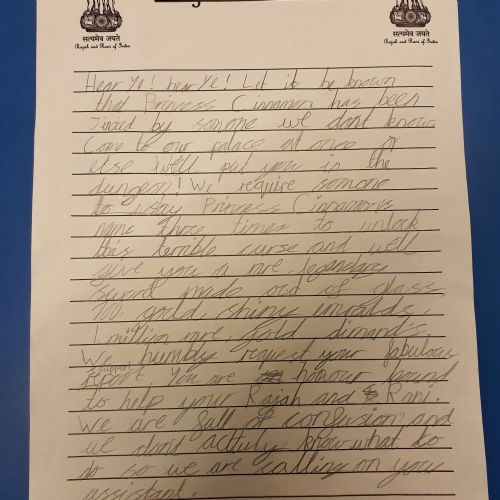 सत्यमेव जयते
Rajah and Rani of India
सत्यमेव जयते
Rajah and Rani of India
Hear Ye! hear Ye! Let it be known
that Princess Cinnamon has been
Jinxed by somone we dont know.
Come to our palace at once or
else we'll put you in the
dungeon! We require somone
to say Princess Cinnamon's
name three times to unlock
this terrible curse and well
give you a rare legendary
sword made out of glass,
900 gold, shiney emralds,
1 million rare gold dimands.
We humbly request your fabulous
support. You are honour bound
to help your Rajah and Rani.
We are full of confusion and
we dont actully know what to
do so we are calling on your
assistant.